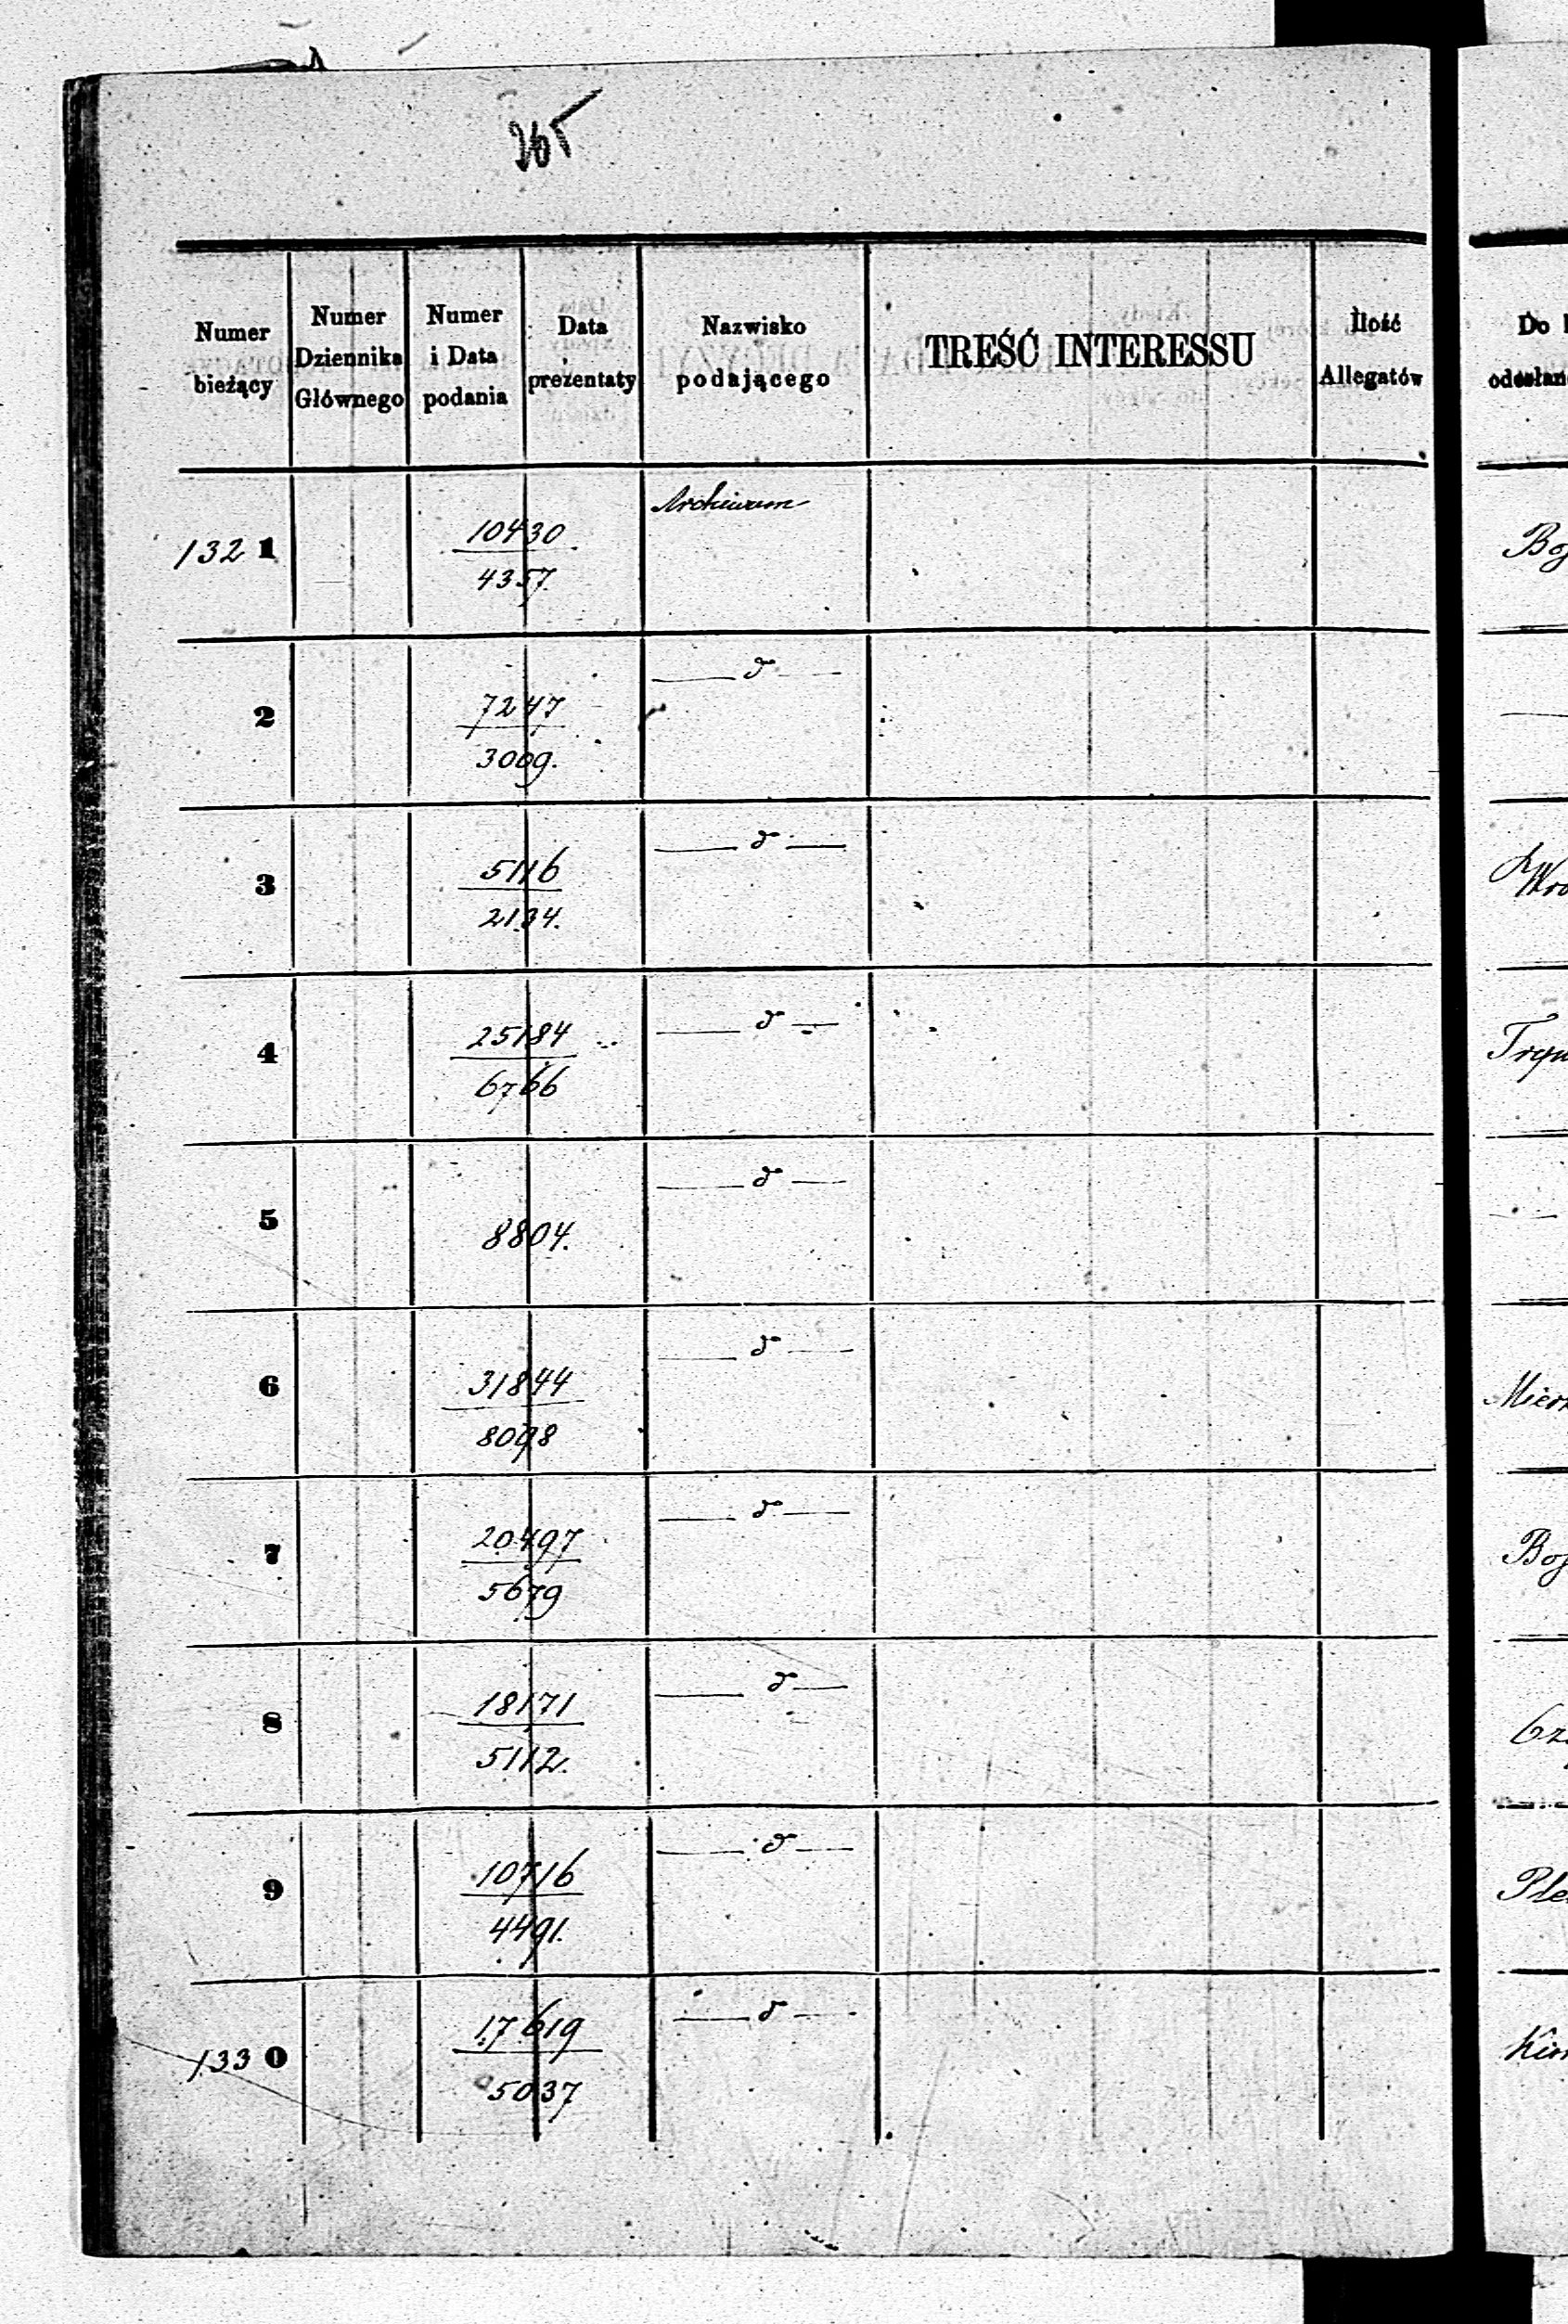 265
Numer bieżący
Numer Dziennika Głównego
Numer i Data podania
Data prezentaty
Nazwisko podającego
TREŚĆ INTERESSU
Ilość Allegatów
Do
1321 10430 Archiwum
4357.
2 7247 — d —
3009.
3 5116 — d —
2134.
4 25184 — d —
6766
5 8804. — d —
6 31844 — d —
8098
7 20497 — d —
5679
8 18171 — d —
5112.
9 10716 — d —
4491.
1330 17619 — d —
5037